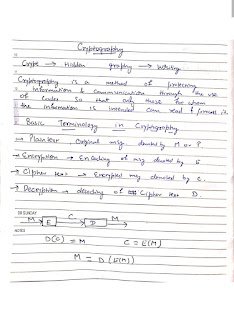 Cryptography
Crypt → Hidden graphy → writing
Cryptography is a method of protecting
information & communications through the use
of codes so that only those for whom
the information is intended can read & process it.
Basic Terminology in Cryptography
→ Plaintext → Original msg denoted by M or P.
→ Encryption → Encoding of msg denoted by E
→ Cipher text → Encrypted msg denoted by C.
→ Decryption → decoding of Cipher text D.
SUNDAY
M → E C → D M →
NOTES
D(C) = M C = E(M)
M = D(E(M))